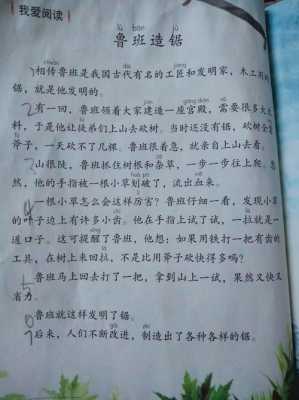 我爱阅读
lǔ bān jù
鲁班造锯
相传鲁班是我国古代有名的工匠和发明家,木工用的
锯,就是他发明的。
有一回,鲁班领着大家建造一座宫殿,需要很多木
料,于是他让徒弟们上山去砍树。当时还没有锯,砍树全靠
斧子,一天砍不了几棵。鲁班很着急,就亲自上山去看。
山很陡,鲁班抓住树根和杂草,一步一步往上爬。忽
然,他的手指被一根小草划破了,流出血来。
一根小草怎么会这样厉害?鲁班仔细一看,发现小草
的叶子边上有许多小齿。他在手指上试了试,一拉就是一
道口子。这可提醒了鲁班,他想:如果用铁打一把有齿的
工具,在树上来回拉,不是比用斧子砍快得多吗?
鲁班马上回去打了一把,拿到山上一试,果然又快又
省力。
鲁班就这样发明了锯。
后来,人们不断改进,制造出了各种各样的锯。